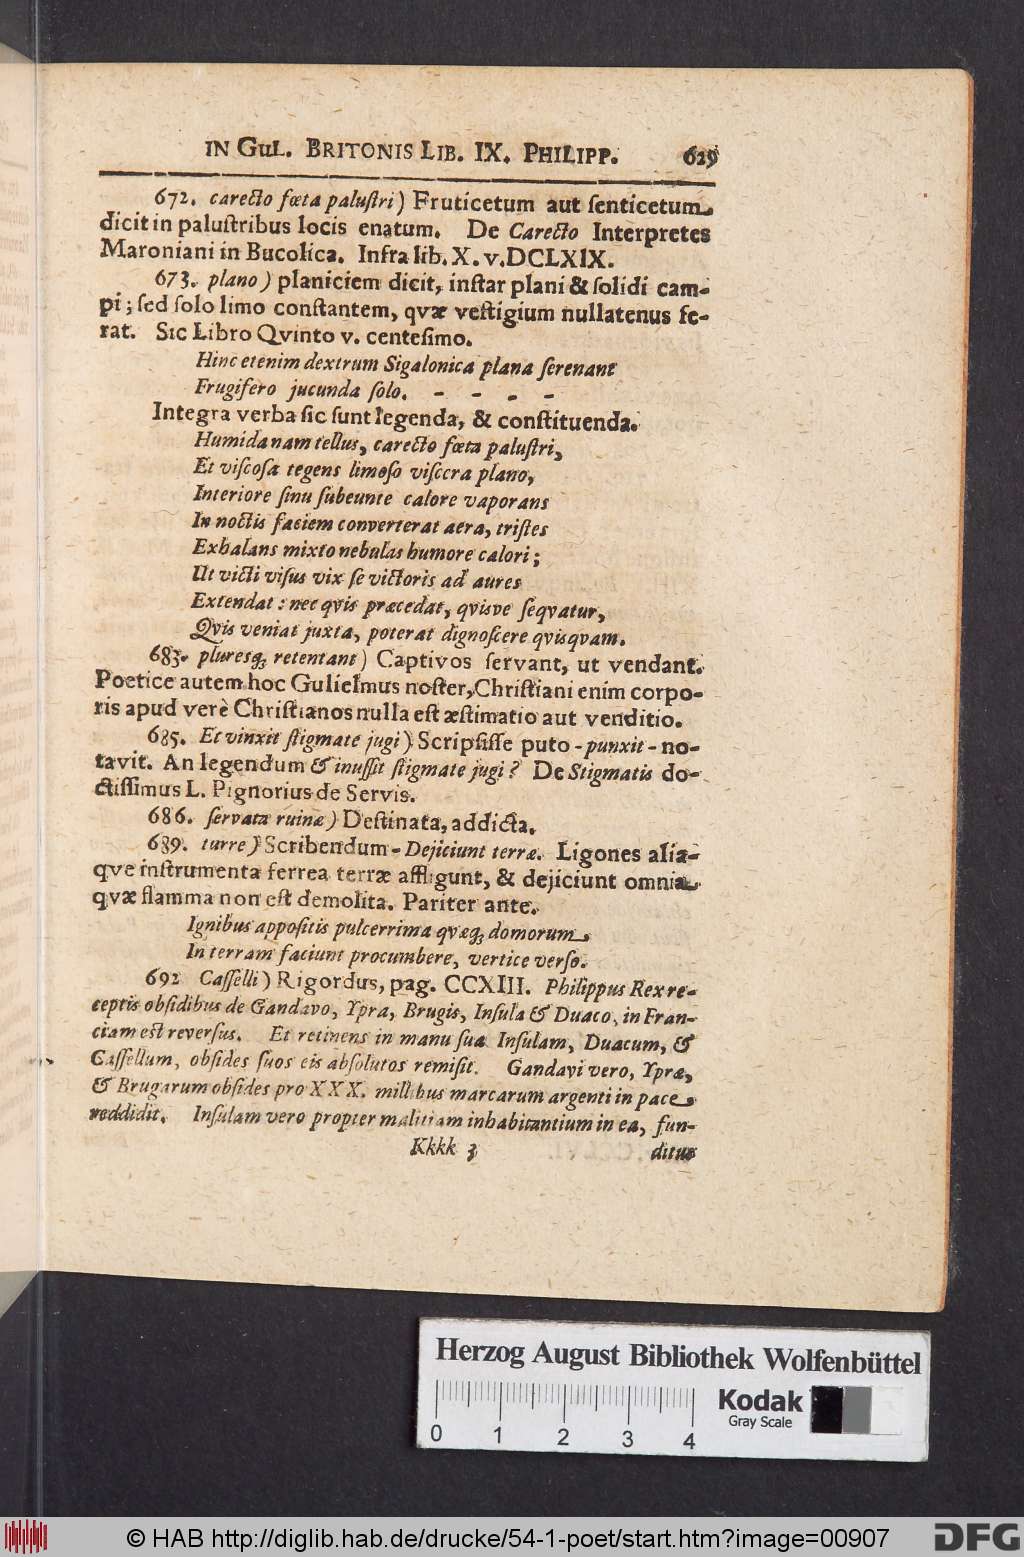 IN GuL. BRITONIS LIB. IX. PHILIPP. 629
672. carecto fœta paluſtri) Fruticetum aut ſenticetum
dicit in paluſtribus locis enatum. De Carecto Interpretes
Maroniani in Bucolica. Infra lib. X. v. DCLXIX.
673. plano) planiciem dicit, inſtar plani & ſolidi cam-
pi; ſed ſolo limo conſtantem, qvæ veſtigium nullatenus fe-
rat. Sic Libro Qvinto v. centeſimo.
Hinc etenim dextrum Sigalonica plana ſerenant
Frugifero jucunda ſolo. - - - -
Integra verba ſic ſunt legenda, & conſtituenda.
Humida nam tellus, carecto fœta paluſtri,
Et viſcoſa tegens limoſo viſcera plano,
Interiore ſinu ſubeunte calore vaporans
In noctis faciem converterat aera, triſtes
Exhalans mixto nebulas humore calori;
Ut victi viſus vix ſe victoris ad aures
Extendat: nec qvis præcedat, qvisve ſeqvatur,
Qvis veniat juxta, poterat dignoſcere qvisqvam.
683. pluresq; retentant) Captivos ſervant, ut vendant.
Poetice autem hoc Gulielmus noſter, Chriſtiani enim corpo-
ris apud verè Chriſtianos nulla eſt æſtimatio aut venditio.
685. Et vinxit ſtigmate jugi) Scripſiſſe puto - punxit - no-
tavit. An legendum & inuſſit ſtigmate jugi? De Stigmatis do-
ctiſſimus L. Pignorius de Servis.
686. ſervata ruinæ) Deſtinata, addicta.
689. turre) Scribendum - Dejiciunt terræ. Ligones alia-
qve inſtrumenta ferrea terræ affligunt, & dejiciunt omnia
qvæ flamma non eſt demolita. Pariter ante.
Ignibus appoſitis pulcerrima qvæq; domorum
In terram faciunt procumbere, vertice verſo.
692 Caſſelli) Rigordus, pag. CCXIII. Philippus Rex re-
ceptis obſidibus de Gandavo, Ypra, Brugis, Inſula & Duaco, in Fran-
ciam est reverſus. Et retinens in manu ſua Inſulam, Duacum, &
Caſſellum, obſides ſuos eis abſolutos remiſit. Gandavi vero, Ypræ,
& Brugarum obſides pro XXX. millibus marcarum argenti in pace
reddidit. Inſulam vero propter malitiam inhabitantium in ea, fun-
Kkkk 3 ditus
Herzog August Bibliothek Wolfenbüttel
0 1 2 3 4
Kodak
Gray Scale
© HAB http://diglib.hab.de/drucke/54-1-poet/start.htm?image=00907
DFG